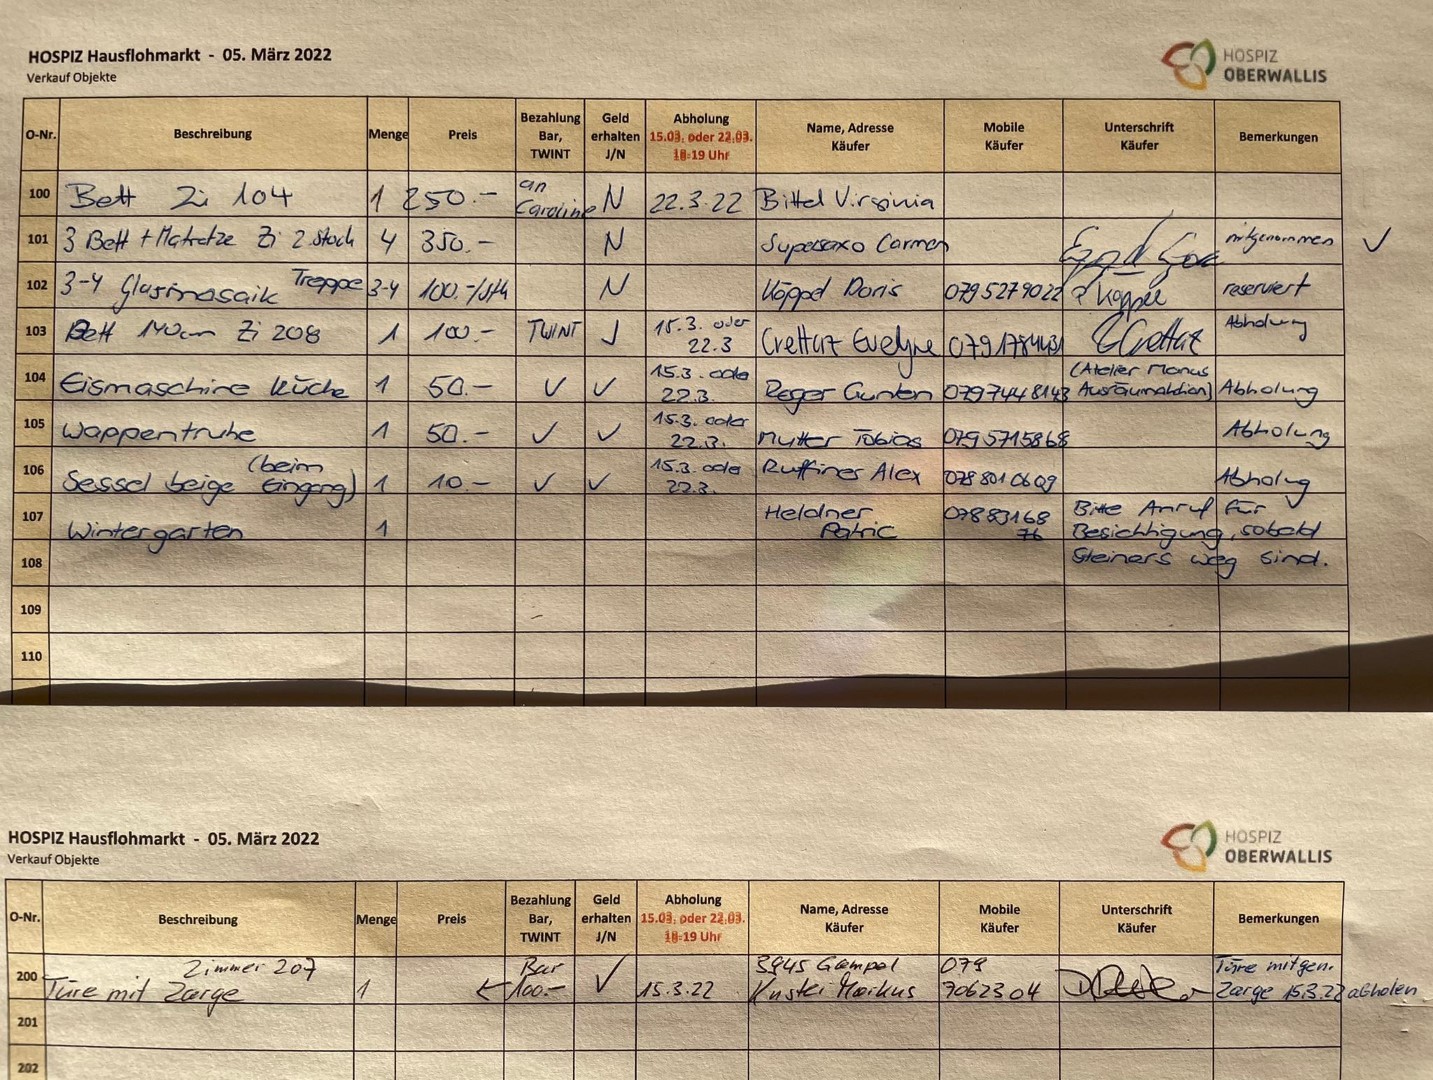 HOSPIZ Hausflohmarkt - 05. März 2022
Verkauf Objekte
HOSPIZ
OBERWALLIS
O-Nr. Beschreibung Menge Preis Bezahlung Bar, TWINT Geld erhalten J/N Abholung 15.03. oder 22.03. 18-19 Uhr Name, Adresse Käufer Mobile Käufer Unterschrift Käufer Bemerkungen
100 Bett Zi 104 1 250.- an Caroline N 22.3.22 Bittel Virginia
101 3 Bett + Matratze Zi 2. Stock 4 350.- N Supersaxo Carmen mitgenommen ✓
102 3-4 Glasmosaik Treppe 3-4 100.-/Stk N Köppel Doris 079 527 90 22 Köppel reserviert
103 Bett 140cm Zi 208 1 100.- TWINT J 15.3. oder 22.3 Crettaz Evelyne 079 178 44 31 E Crettaz Abholung
104 Eismaschine Küche 1 50.- ✓ ✓ 15.3. oder 22.3. Reger Gunten 079 744 81 43 (Atelier Manus Ausräumaktion) Abholung
105 Wappentruhe 1 50.- ✓ ✓ 15.3. oder 22.3. Mutter Tobias 079 571 58 68 Abholung
106 Sessel beige (beim Eingang) 1 10.- ✓ ✓ 15.3. oder 22.3. Ruffiner Alex 078 801 06 09 Abholung
107 Wintergarten 1 Heldner Patric 078 831 68 76 Bitte Anruf für Besichtigung, sobald
108 Steiners weg sind.
109
110
HOSPIZ Hausflohmarkt - 05. März 2022
Verkauf Objekte
HOSPIZ
OBERWALLIS
O-Nr. Beschreibung Menge Preis Bezahlung Bar, TWINT Geld erhalten J/N Abholung 15.03. oder 22.03. 18-19 Uhr Name, Adresse Käufer Mobile Käufer Unterschrift Käufer Bemerkungen
200 Zimmer 207 Türe mit Zarge 1 ← Bar 100.- ✓ 15.3.22 3945 Gampel Markus 079 706 23 04 Türe mitgen. Zarge 15.3.22 abholen
201
202